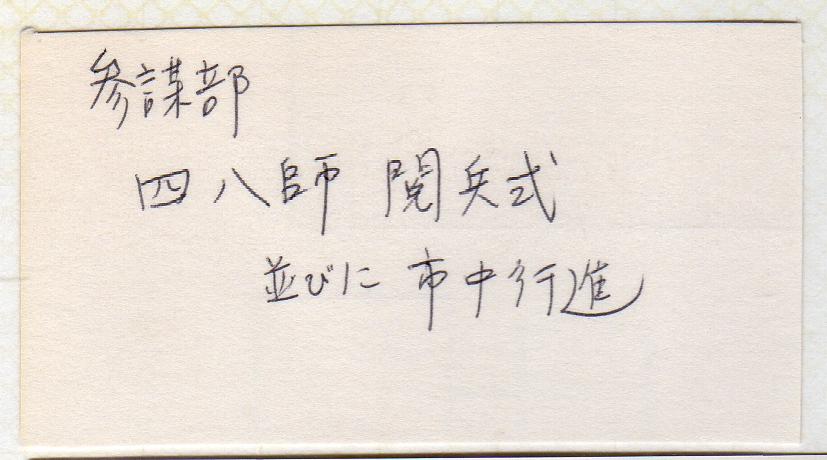 参謀部
四八師 閲兵式
並びに 市中行進